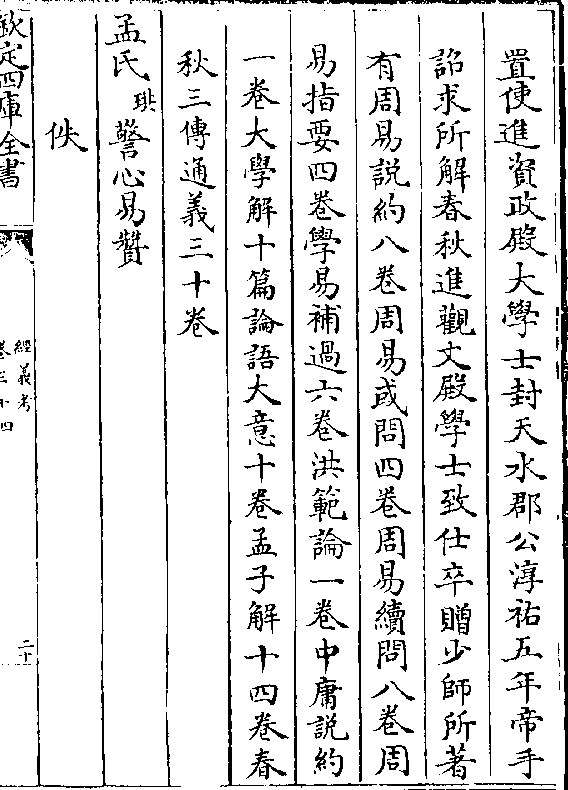 置使進資政殿大學士封天水郡公淳祐五年帝手
詔求所解春秋進觀文殿學士致仕卒贈少師所著
有周易説約八卷周易或問四卷周易續問八卷周
易指要四卷學易補過六卷洪範論一卷中庸説約
一卷大學解十篇論語大意十卷孟子解十四卷春
秋三傳通義三十卷
孟氏珙警心易贊
佚
欽定四庫全書
經義考
卷三十四
二十